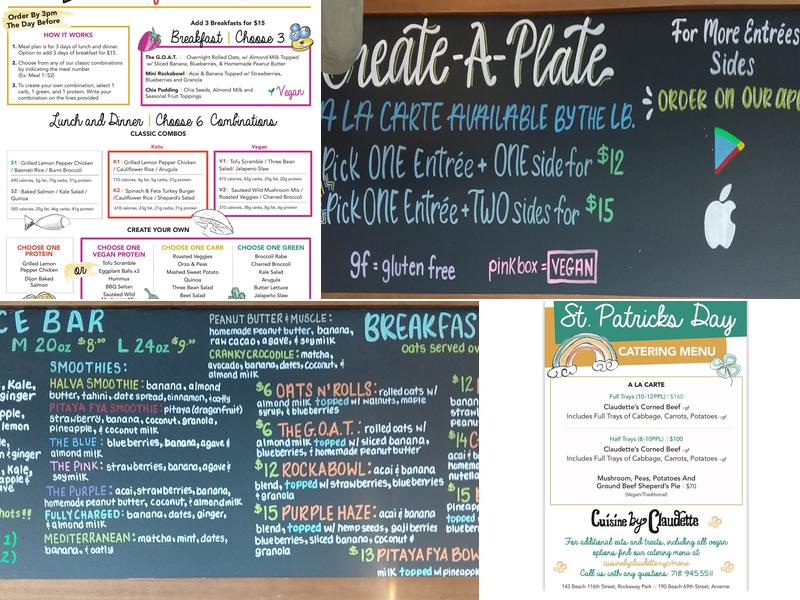 Order By 3pm
The Day Before
HOW IT WORKS
1. Meal plan is for 3 days of lunch and dinner.
Option to add 3 days of breakfast for $15.
2. Choose from any of our classic combinations
by indicating the meal number
(Ex: Meal 1: S2)
3. To create your own combination, select 1
carb, 1 green, and 1 protein. Write your
combination on the lines provided
Add 3 Breakfasts for $15
Breakfast | Choose 3
The G.O.A.T. : Overnight Rolled Oats, w/ Almond Milk Topped
w/ Sliced Banana, Blueberries, & Homemade Peanut Butter
Mini Rockabowl : Acai & Banana Topped w/ Strawberries,
Blueberries and Granola
Chia Pudding : Chia Seeds, Almond Milk and
Seasonal Fruit Toppings
Vegan
Lunch and Dinner | Choose 6 Combinations
CLASSIC COMBOS
S1: Grilled Lemon Pepper Chicken
/ Basmati Rice / Burnt Broccoli
S2 : Baked Salmon / Kale Salad /
Quinoa
585 calories, 25g fat, 46g carbs, 41g protein
Keto
K1: Grilled Lemon Pepper Chicken
/ Cauliflower Rice / Arugula
K2 : Spinach & Feta Turkey Burger
/Cauliflower Rice / Shepard's Salad
618 calories, 23g fat, 21g carbs, 71g protein
Vegan
V1 : Tofu Scramble / Three Bean
Salad/ Jalapeno Slaw
475 calories, 42g carbs, 25g fat, 20g protein
V2 : Sauteed Wild Mushroom Mix /
Roasted Veggies / Charred Broccoli
310 calories, 38g carbs, 8g fat, 6g protein
CREATE YOUR OWN
CHOOSE ONE
PROTEIN
Grilled Lemon
Pepper Chicken
Dijon Baked
Salmon
or
CHOOSE ONE
VEGAN PROTEIN
Tofu Scramble
Eggplant Balls x3
Hummus
BBQ Seitan
Sautéed Wild
CHOOSE ONE CARB
Roasted Veggies
Orzo & Peas
Mashed Sweet Potato
Quinoa
Three Bean Salad
Beet Salad
CHOOSE ONE GREEN
Broccoli Rabe
Charred Broccoli
Kale Salad
Arugula
Butter Lettuce
Jalapeño Slaw
Create-A-Plate
A LA CARTE AVAILABLE BY THE LB.
Pick ONE Entrée + ONE side for $12
Pick ONE Entrée + TWO sides for $15
gf = gluten free
pink box = VEGAN
For More Entrées
Sides
ORDER ON OUR APP
CE BAR
M 20oz $8.00 L 24oz $9.00
, Kale,
ginger
pple,
lemon
n & ginger
, Kale,
hots!!
1)
2)
SMOOTHIES:
HALVA SMOOTHIE: banana, almond
butter, tahini, date spread, cinnamon, & oatly
PITAYA FYA SMOOTHIE: pitaya (dragonfruit)
strawberry, banana, coconut, granola,
pineapple, & coconut milk
THE BLUE: blueberries, banana, agave &
almond milk
THE PINK: strawberries, banana, agave &
soymilk
THE PURPLE: acai, strawberries, banana,
homemade peanut butter, coconut, & almond milk
FULLY CHARGED: banana, dates, ginger,
& almond milk
MEDITERRANEAN: matcha, mint, dates,
banana, & oatly
PEANUT BUTTER & MUSCLE:
homemade peanut butter, banana,
raw cacao, agave, & soymilk
CRANKY CROCODILE: matcha,
avocado, banana, dates, coconut, &
almond milk
BREAKFAS
oats served ov
$6 OATS N' ROLLS: rolled oats w/
almond milk topped w/ walnuts, maple
syrup, & blueberries
$6 THE G.O.A.T.: rolled oats w/
almond milk topped w/ sliced banana,
blueberries, & homemade peanut butter
$12 ROCKABOWL: acai & banana
blend, topped w/ strawberries, blueberries
& granola
$15 PURPLE HAZE: acai & banana
blend, topped w/ hemp seeds, goji berries
blueberries, sliced banana, coconut &
granola
$13 PITAYA FYA BOW
milk topped w/ pineapple
$12
$14
$15
$15
St. Patricks Day
CATERING MENU
A LA CARTE
Full Trays (10-12PPL) | $160
Claudette's Corned Beef gf
Includes Full Trays of Cabbage, Carrots, Potatoes gf
Half Trays (8-10PPL) | $100
Claudette's Corned Beef gf
Includes Full Trays of Cabbage, Carrots, Potatoes gf
Mushroom, Peas, Potatoes And
Ground Beef Sheperd's Pie | $70
(Vegan/Traditional)
Cuisine by Claudette
For additional eats and treats, including all vegan
options find our catering menu at
cuisinebyclaudette.nyc/menu
Call us with any questions 718.945.5511
143 Beach 116th Street, Rockaway Park // 190 Beach 69th Street, Arverne